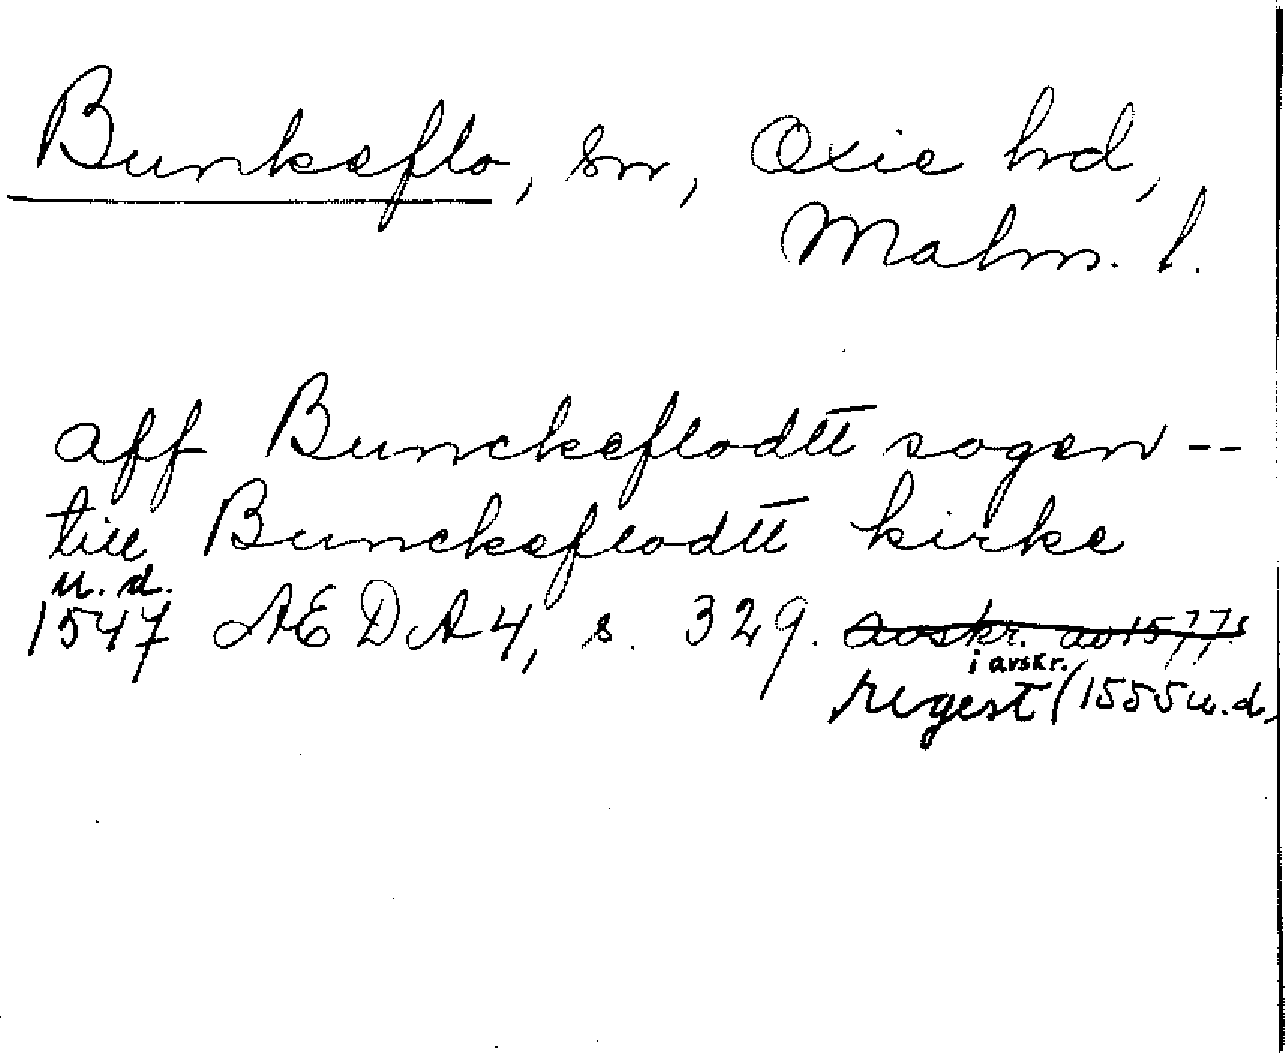 Bunkeflo, sn, Oxie hd,
Malm. l.
aff Bunckeflodtt sogen --
till Bunckeflodtt kirke
u. d.
1547 ÆDA 4, s. 329. avskr. av 1577
i avskr.
regest (1555 u. d.